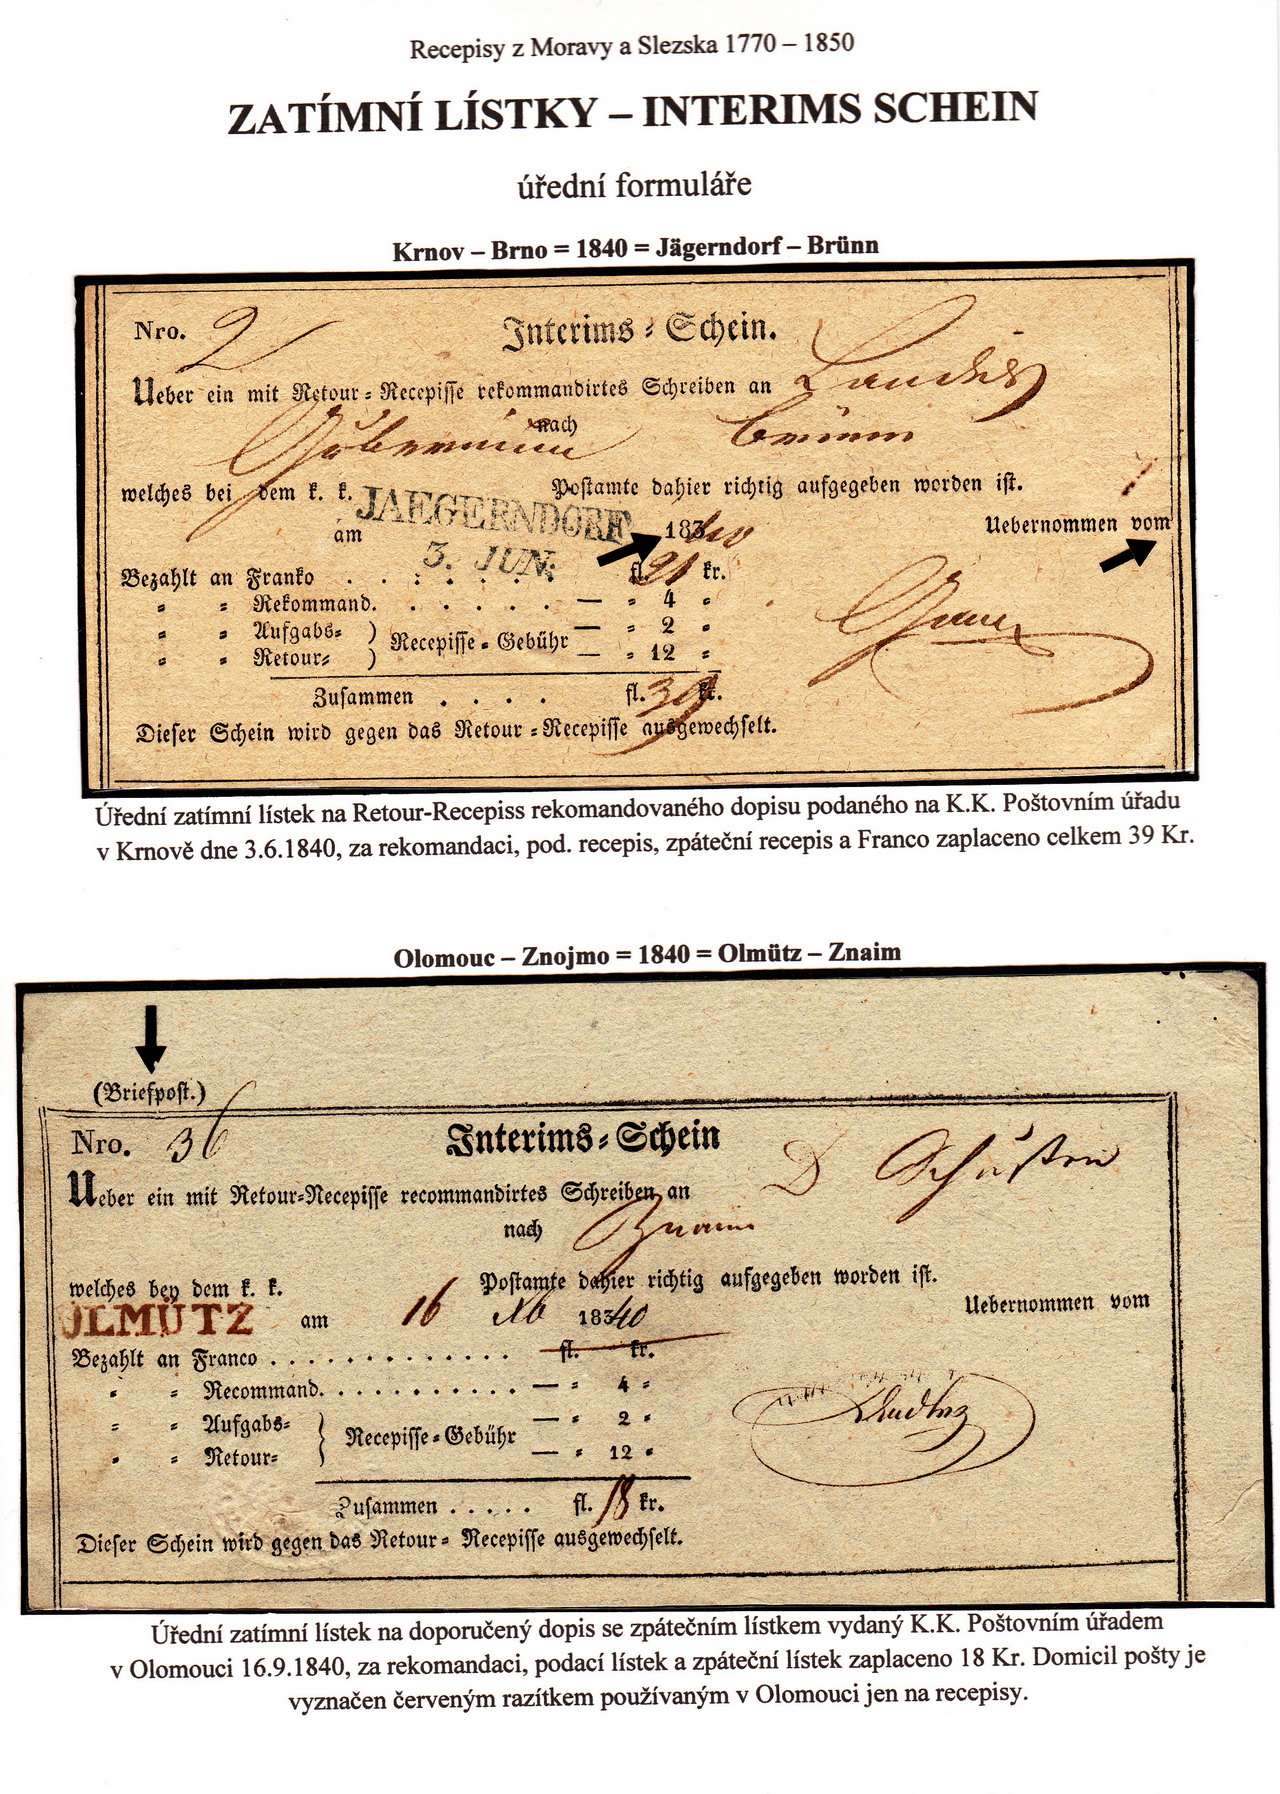 Recepisy z Moravy a Slezska 1770 – 1850
ZATÍMNÍ LÍSTKY – INTERIMS SCHEIN
úřední formuláře
Krnov – Brno = 1840 = Jägerndorf – Brünn
Nro. 2 Interims = Schein.
Ueber ein mit Retour = Recepisse rekommandirtes Schreiben an Landes
Gubernium nach Brünn
welches bei dem k. k. Postamte dahier richtig aufgegeben worden ist.
JAEGERNDORF
am 3. JUN: 1840 Uebernommen vom
Bezahlt an Franko . . . . . . fl. 21 kr.
" = Rekommand. . . . . . — = 4 =
= = Aufgabs= ) Recepisse = Gebühr — = 2 =
= = Retour= ) — = 12 =
Zusammen . . . . fl. 39 kr.
Dieser Schein wird gegen das Retour = Recepisse ausgewechselt.
Úřední zatímní lístek na Retour-Recepiss rekomandovaného dopisu podaného na K.K. Poštovním úřadu
v Krnově dne 3.6.1840, za rekomandaci, pod. recepis, zpáteční recepis a Franco zaplaceno celkem 39 Kr.
Olomouc – Znojmo = 1840 = Olmütz – Znaim
(Briefpost.)
Nro. 36 Interims = Schein
Ueber ein mit Retour=Recepisse recommandirtes Schreiben an D
nach Znaim
welches bey dem k. k. Postamte dahier richtig aufgegeben worden ist.
OLMÜTZ am 16 Xb 18340 Uebernommen vom
Bezahlt an Franco . . . . . . . . . . . . . fl. kr.
= = Recommand. . . . . . . . . . . — = 4 =
= = Aufgabs= } Recepisse = Gebühr — = 2 =
= = Retour= } — = 12 =
Zusammen . . . . . fl. 18 kr.
Dieser Schein wird gegen das Retour = Recepisse ausgewechselt.
Úřední zatímní lístek na doporučený dopis se zpátečním lístkem vydaný K.K. Poštovním úřadem
v Olomouci 16.9.1840, za rekomandaci, podací lístek a zpáteční lístek zaplaceno 18 Kr. Domicil pošty je
vyznačen červeným razítkem používaným v Olomouci jen na recepisy.